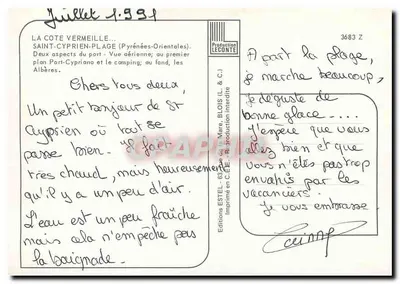 Juillet 1991
LA COTE VERMEILLE...
SAINT-CYPRIEN-PLAGE (Pyrénées-Orientales).
Deux aspects du port - Vue aérienne; au premier
plan Port-Cypriano et le camping; au fond, les
Albères.
Chers tous deux,
Un petit bonjour de St
Cyprien où tout se
passe bien. Il fait
très chaud, mais heureusement
qu'il y a un peu d'air.
L'eau est un peu fraîche
mais cela n'empêche pas
la baignade.
Production
LECONTE
Editions ESTEL - Mare, BLOIS (L. & C.)
Imprimé en C.E.E. - Reproduction interdite
3683 Z
A part la plage,
je marche beaucoup,
je déguste de
bonne glace....
J'espère que vous
allez bien et que
vous n'êtes pas trop
envahis par les
vacanciers.
Je vous embrasse
Corinne